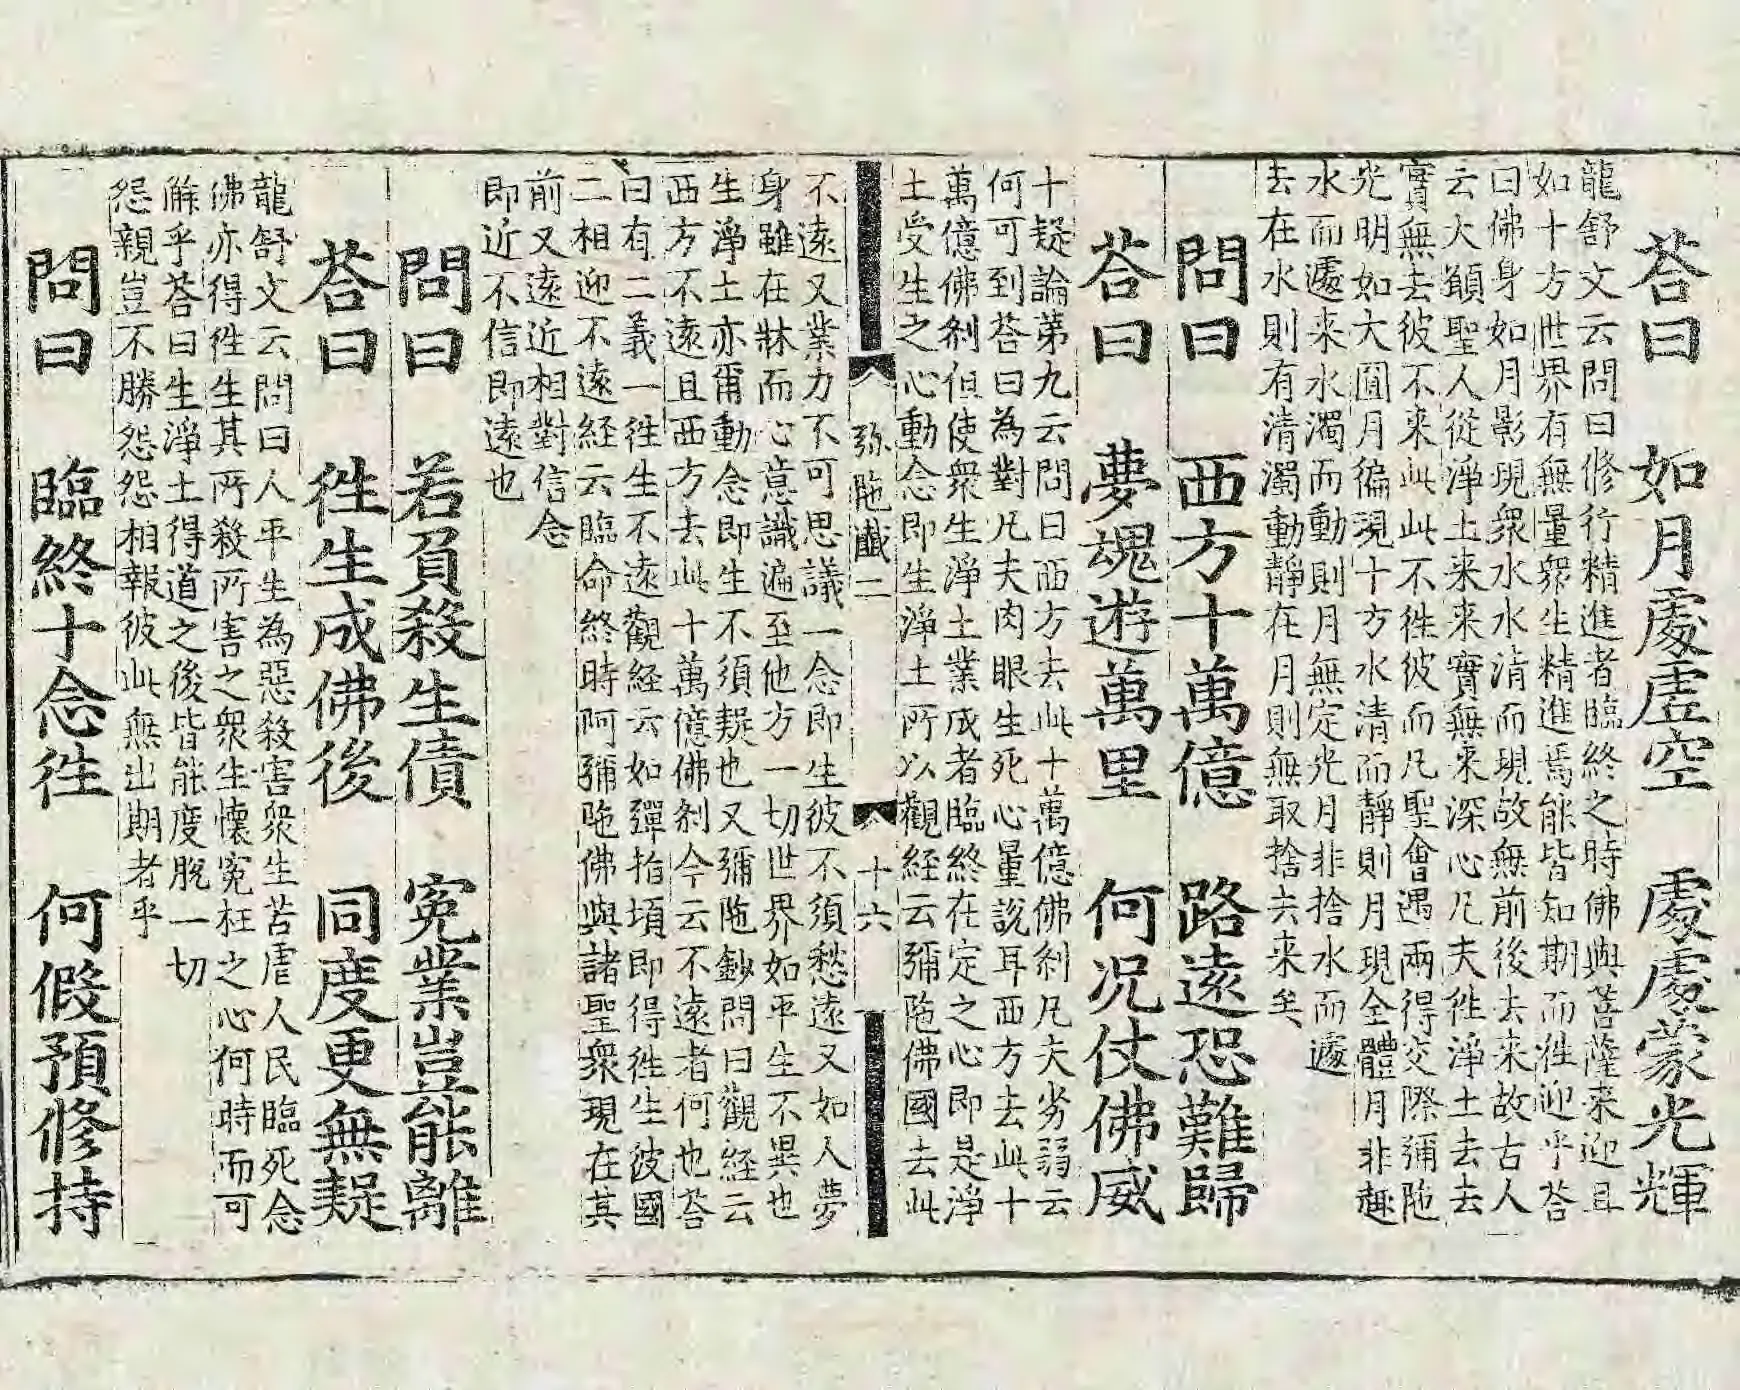 荅曰　如月處虛空　處處蒙光輝
龍舒文云問曰修行精進者臨終之時佛與菩薩來迎且
如十方世界有無量衆生精進焉能皆知期而徃迎乎荅
曰佛身如月影現衆水水清而現故無前後去来故古人
云大顚聖人從淨土来来實無来深心凡夫徃淨土去去
實無去彼不来此此不徃彼而凡聖會遇兩得交際彌陁
光明如大圓月徧現十方水清而靜則月現全體月非趣
水而遽来水濁而動則月無定光月非捨水而遽
去在水則有清濁動靜在月則無取捨去来矣
問曰　西方十萬億　路遠恐難歸
荅曰　夢魂遊萬里　何况仗佛威
十疑論第九云問曰西方去此十萬億佛刹凡夫劣弱云
何可到荅曰為對凡夫肉眼生死心量說耳西方去此十
萬億佛刹但使衆生淨土業成者臨終在定之心即是淨
土受生之心動念即生淨土所以觀経云彌陁佛國去此
弥陁讖二　十六
不遠又業力不可思議一念即生彼不須愁遠又如人夢
身雖在牀而心意識遍至他方一切世界如平生不異也
生淨土亦爾動念即生不須疑也又彌陁鈔問曰觀経云
西方不遠且西方去此十萬億佛刹今云不遠者何也荅
曰有二義一徃生不遠觀経云如彈指頃即得徃生彼國
二相迎不遠経云臨命終時阿彌陁佛與諸聖衆現在其
前又遠近相對信念
即近不信即遠也
問曰　若負殺生債　寃業豈能離
荅曰　徃生成佛後　同度更無疑
龍舒文云問曰人平生為惡殺害衆生苦虐人民臨死念
佛亦得徃生其所殺所害之衆生懷寃枉之心何時而可
解乎荅曰生淨土得道之後皆能度脫一切
怨親豈不勝怨怨相報彼此無出期者乎
問曰　臨終十念徃　何假預修持